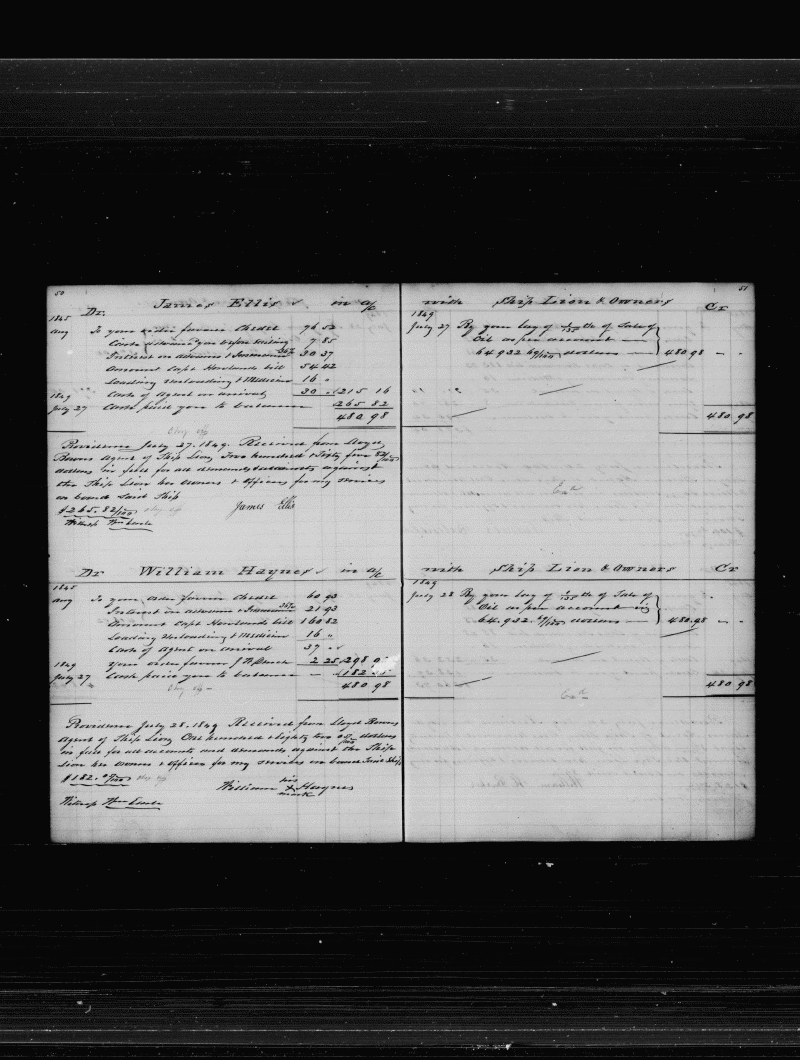 50
Dr. James Ellis in a/c
1845
Aug To your order favour Credit 76 52
Cash advanced you before sailing 7 85
Interest on advance & Insurance 36% 30 37
Amount Capt Howlands bill 54 42
Loading Unloading & Medicine 16 "
1849 Cash of Agent on arrival 30 " 215 16
July 27 Cash paid you to balance 265 82
480 98
Providence July 27. 1849. Received from Lloyd
Bowers Agent of Ship Lion, Two hundred & Sixty five 82/100
dollars in full for all demands & accounts against
the Ship Lion her owners & officers for my services
on board said Ship
$265.82/100
James Ellis
Witness Wm Earle
Dr William Haynes in a/c
1845
Aug To your order favour Credit 60 93
Interest on advance & Insurance 36% 21 93
Amount Capt Howlands bill 160 82
Loading Unloading & Medicine 16 "
Cash of Agent on arrival 37
1849 Your order favour 2 25 298
July 27 Cash paid you to balance 182
480 98
Providence July 28. 1849 Received from Lloyd Bowers
Agent of Ship Lion, One hundred & eighty two dollars
in full for all accounts and demands against the Ship
Lion her owners & officers for my services on board said Ship
$182.
William his X mark Haynes
Witness Wm Earle
51
with Ship Lion & Owners Cr
1849
July 27 By your lay of 1/135th of Sale of
Oil as per account
64.932 69/100 dollars 480 98
480 98
with Ship Lion & Owners Cr
1849
July 28 By your lay of 1/135th of Sale of
Oil as per account
64.932 69/100 dollars 480.98
480 98